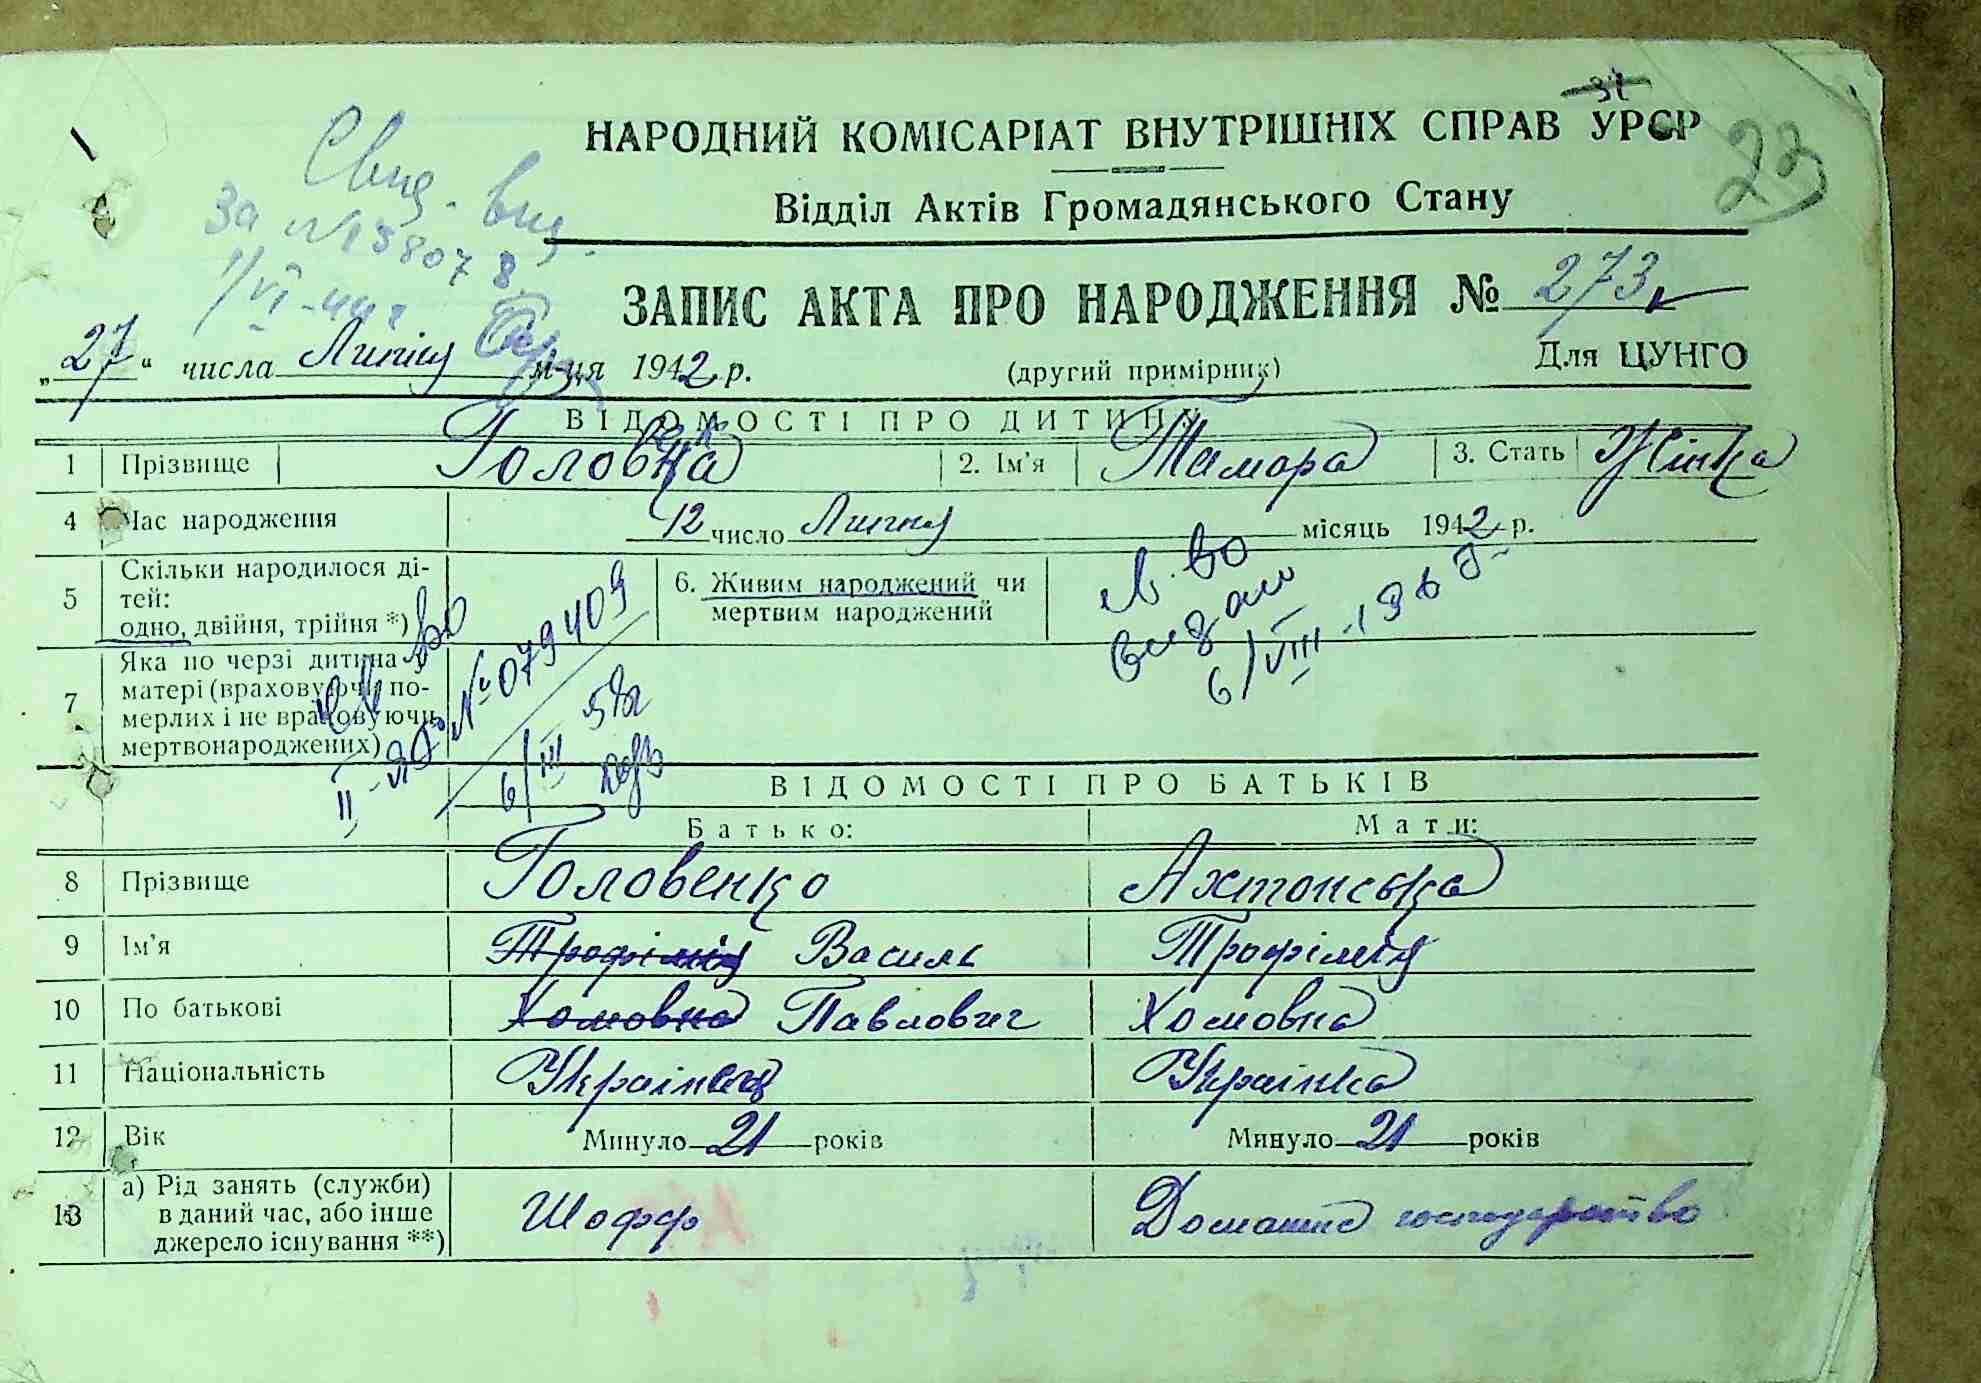 31
НАРОДНИЙ КОМІСАРІАТ ВНУТРІШНІХ СПРАВ УРСР
23
Відділ Актів Громадянського Стану
Свид. выд.
за №138078
ЗАПИС АКТА ПРО НАРОДЖЕННЯ № 273
„27“ числа Липня м-ця 1942 р.
(другий примірник)
Для ЦУНГО
ВІДОМОСТІ ПРО ДИТИНУ
1 Прізвище Головка 2. Ім'я Тамара 3. Стать Жінка
4 Час народження 12 число Липня місяць 1942 р.
5 Скільки народилося ді-
тей:
одно, двійня, трійня *)
6. Живим народжений чи
мертвим народжений
7 Яка по черзі дитина у
матері (враховуючи по-
мерлих і не враховуючи
мертвонароджених)
№ 079409
6/III 59г
выдано
6/VIII-196
ВІДОМОСТІ ПРО БАТЬКІВ
Батько: Мати:
8 Прізвище Головенко Ахтонська
9 Ім'я Трофімія Василь Трофімія
10 По батькові Хомовна Павлович Хомовна
11 Національність Українец Українка
12 Вік Минуло 21 років Минуло 21 років
13 а) Рід занять (служби)
в даний час, або інше
джерело існування **)
Шофр Домашнє господарство